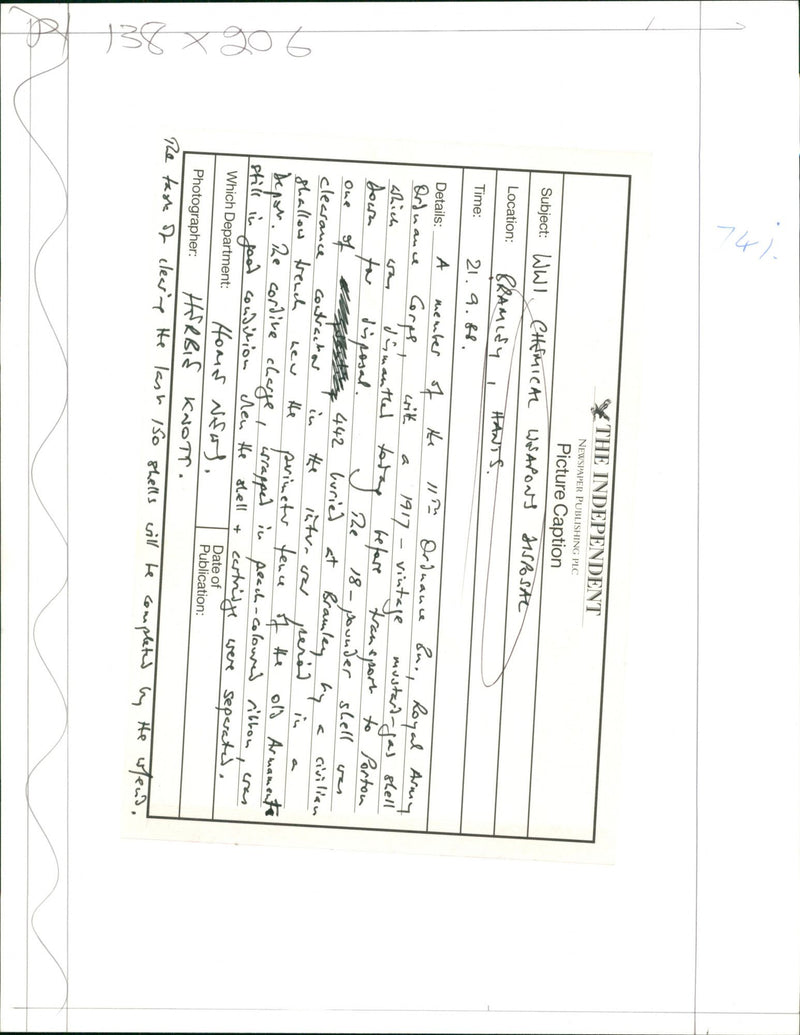 138 x 206
741.
THE INDEPENDENT
NEWSPAPER PUBLISHING PLC
Picture Caption
Subject: WWI CHEMICAL WEAPONS DISPOSAL
Location: BRAMLEY, HANTS.
Time: 21.9.88.
Details: A member of the 11TH Ordnance Bn., Royal Army
Ordnance Corps, with a 1917-vintage mustard-gas shell
which was dismantled today before transport to Porton
Down for disposal. The 18-pounder shell was
one of 442 buried at Bramley by a civilian
clearance contractor in the inter-war period in a
shallow trench near the perimeter fence of the old Armaments
Depot. The cordite charge, wrapped in peach-coloured ribbon, was
still in good condition when the shell + cartridge were separated.
Which Department: HOME NEWS.
Date of Publication:
Photographer: HERBIE KNOTT.
The task of clearing the last 150 shells will be completed by the w/end.